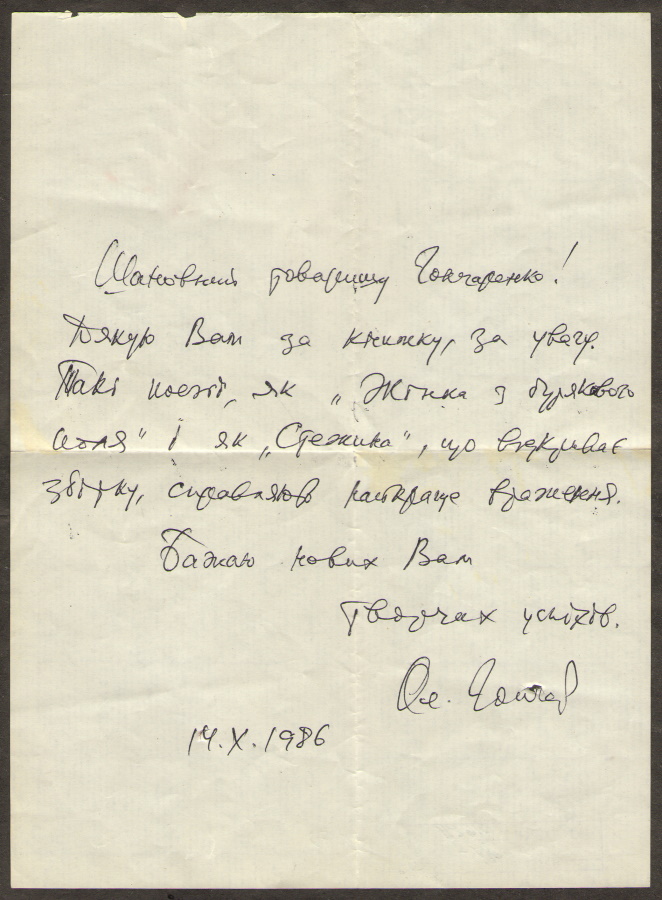 Шановний товаришу Гончаренко!
Дякую Вам за книжку, за увагу.
Такі поезії, як „Жінка з бурякового
поля" і як „Стежина", що відкриває
збірку, справляють найкраще враження.
Бажаю нових Вам
творчих успіхів.
Ол. Гончар
14.X.1986